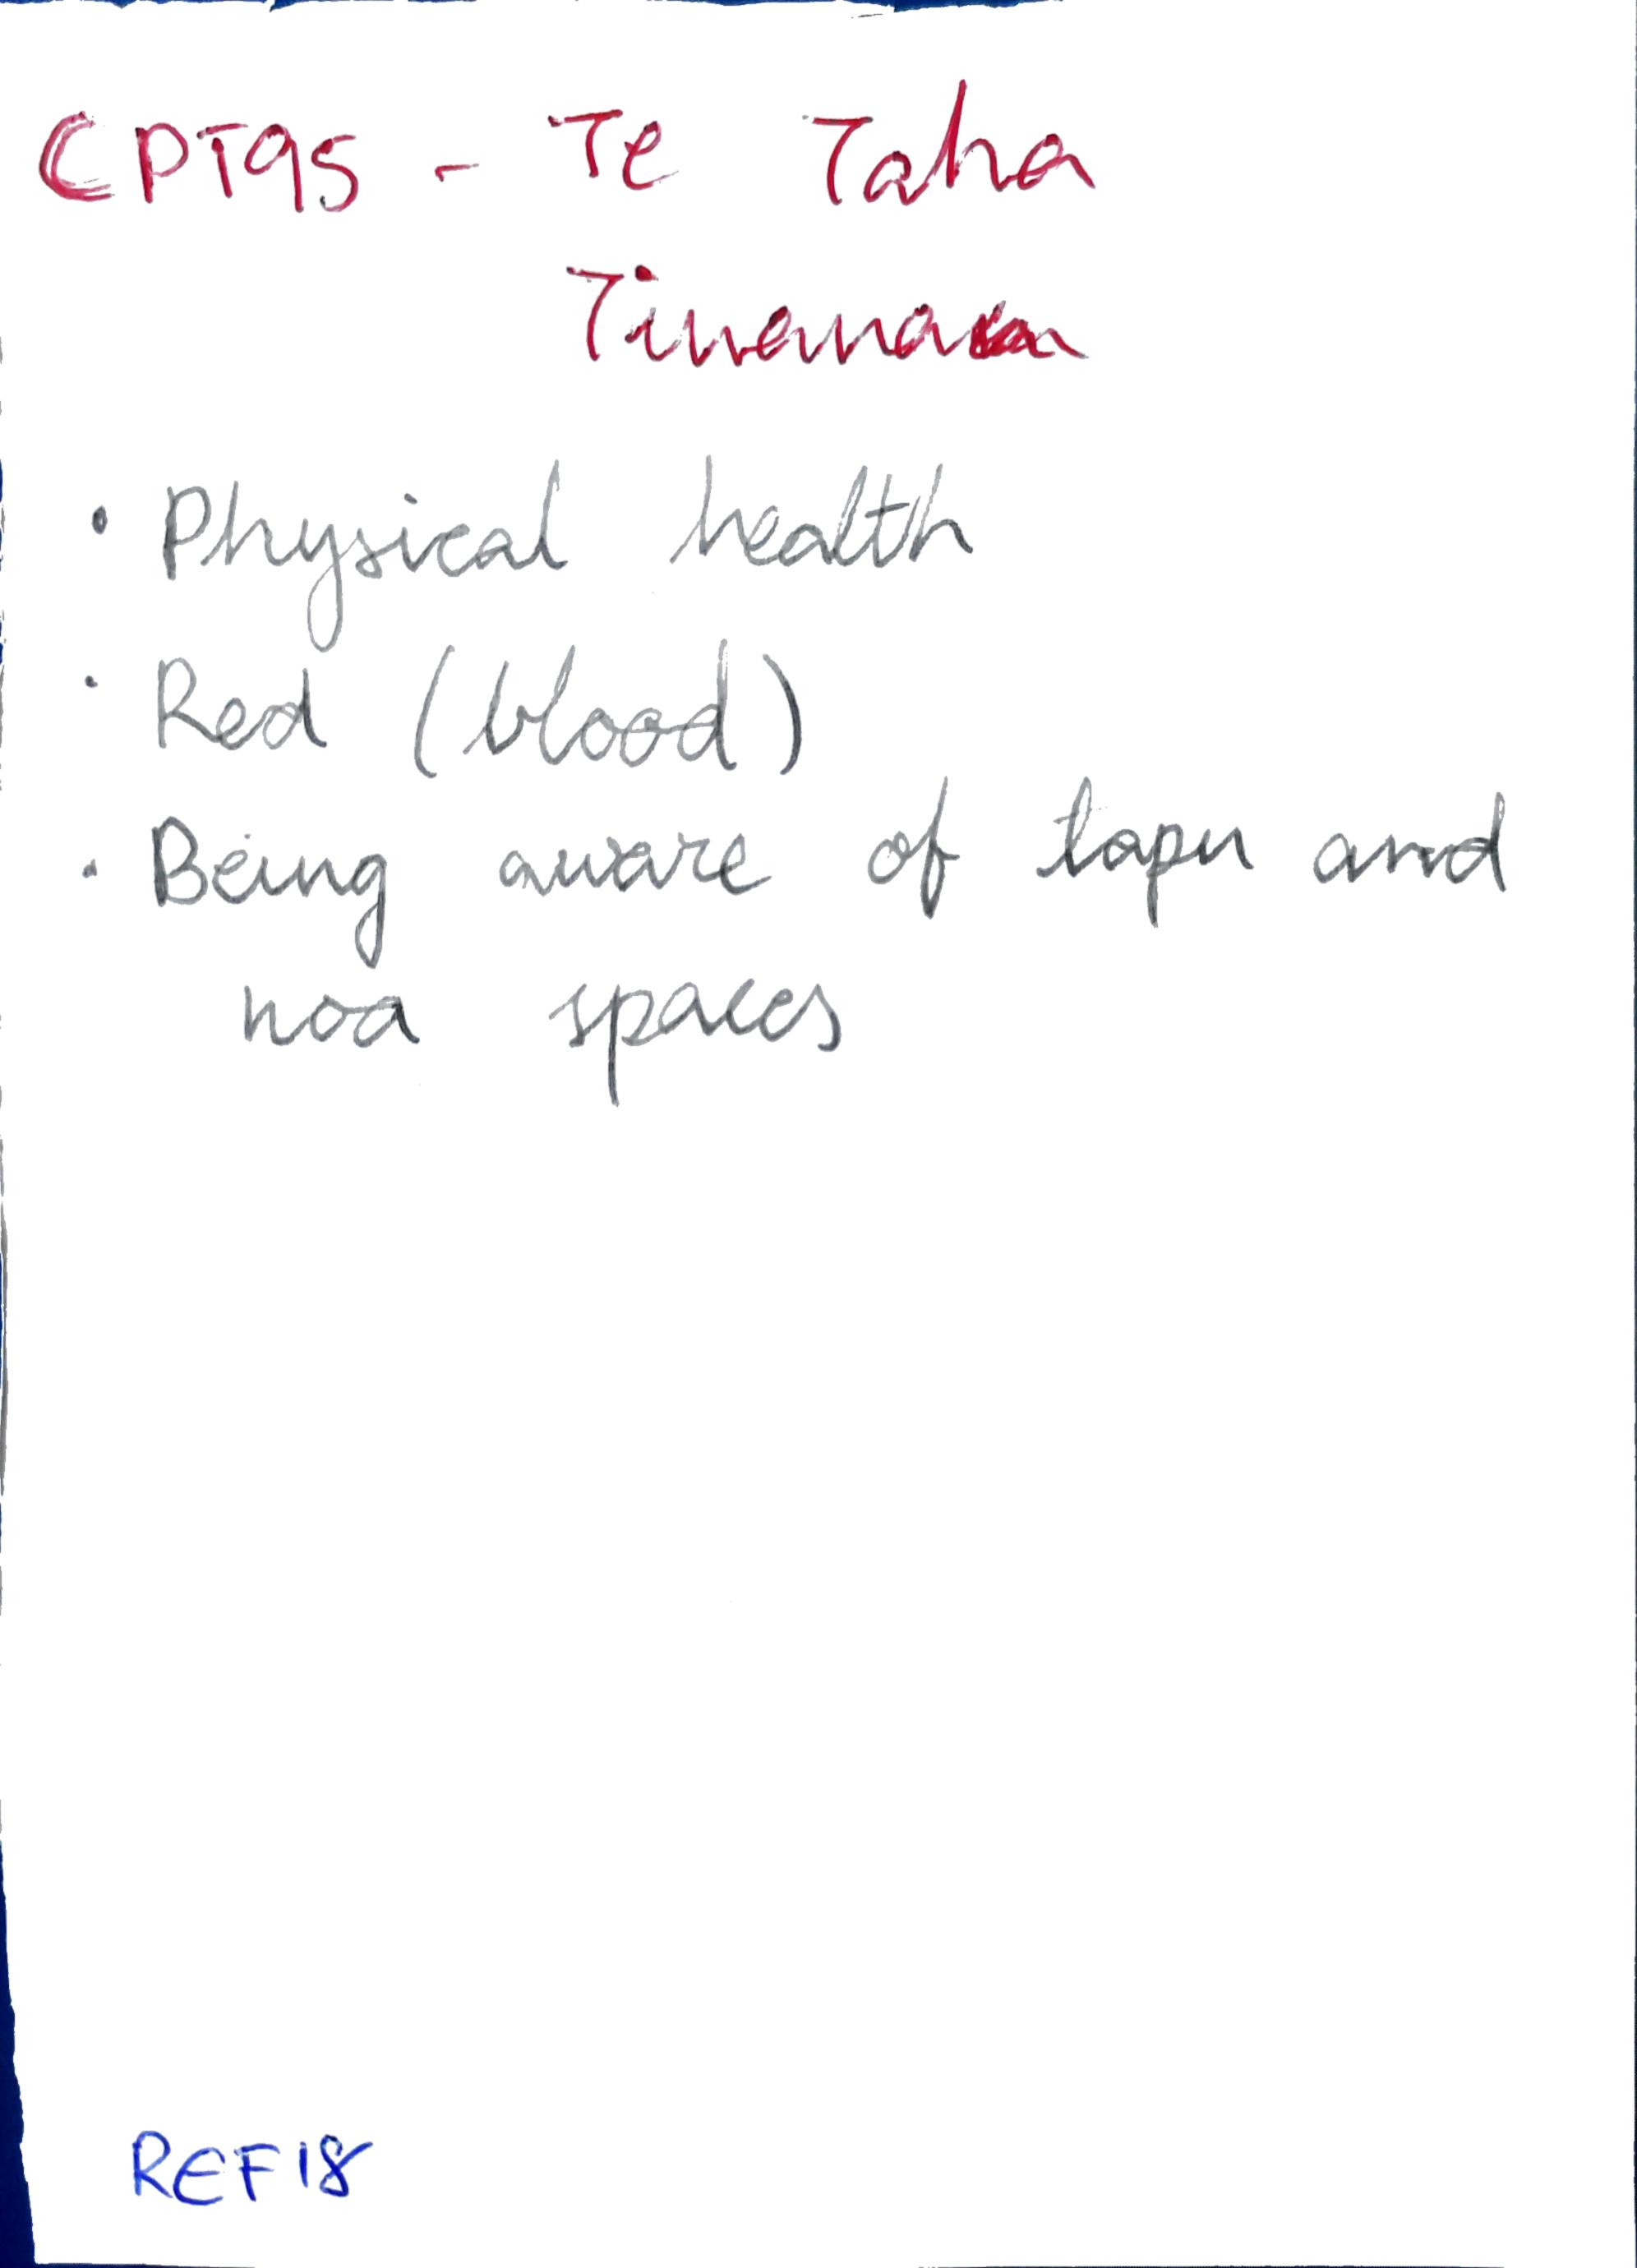 CPT95 - Te Taha
• Physical health
• Red (blood)
• Being aware of tapu and
noa spaces
REF18